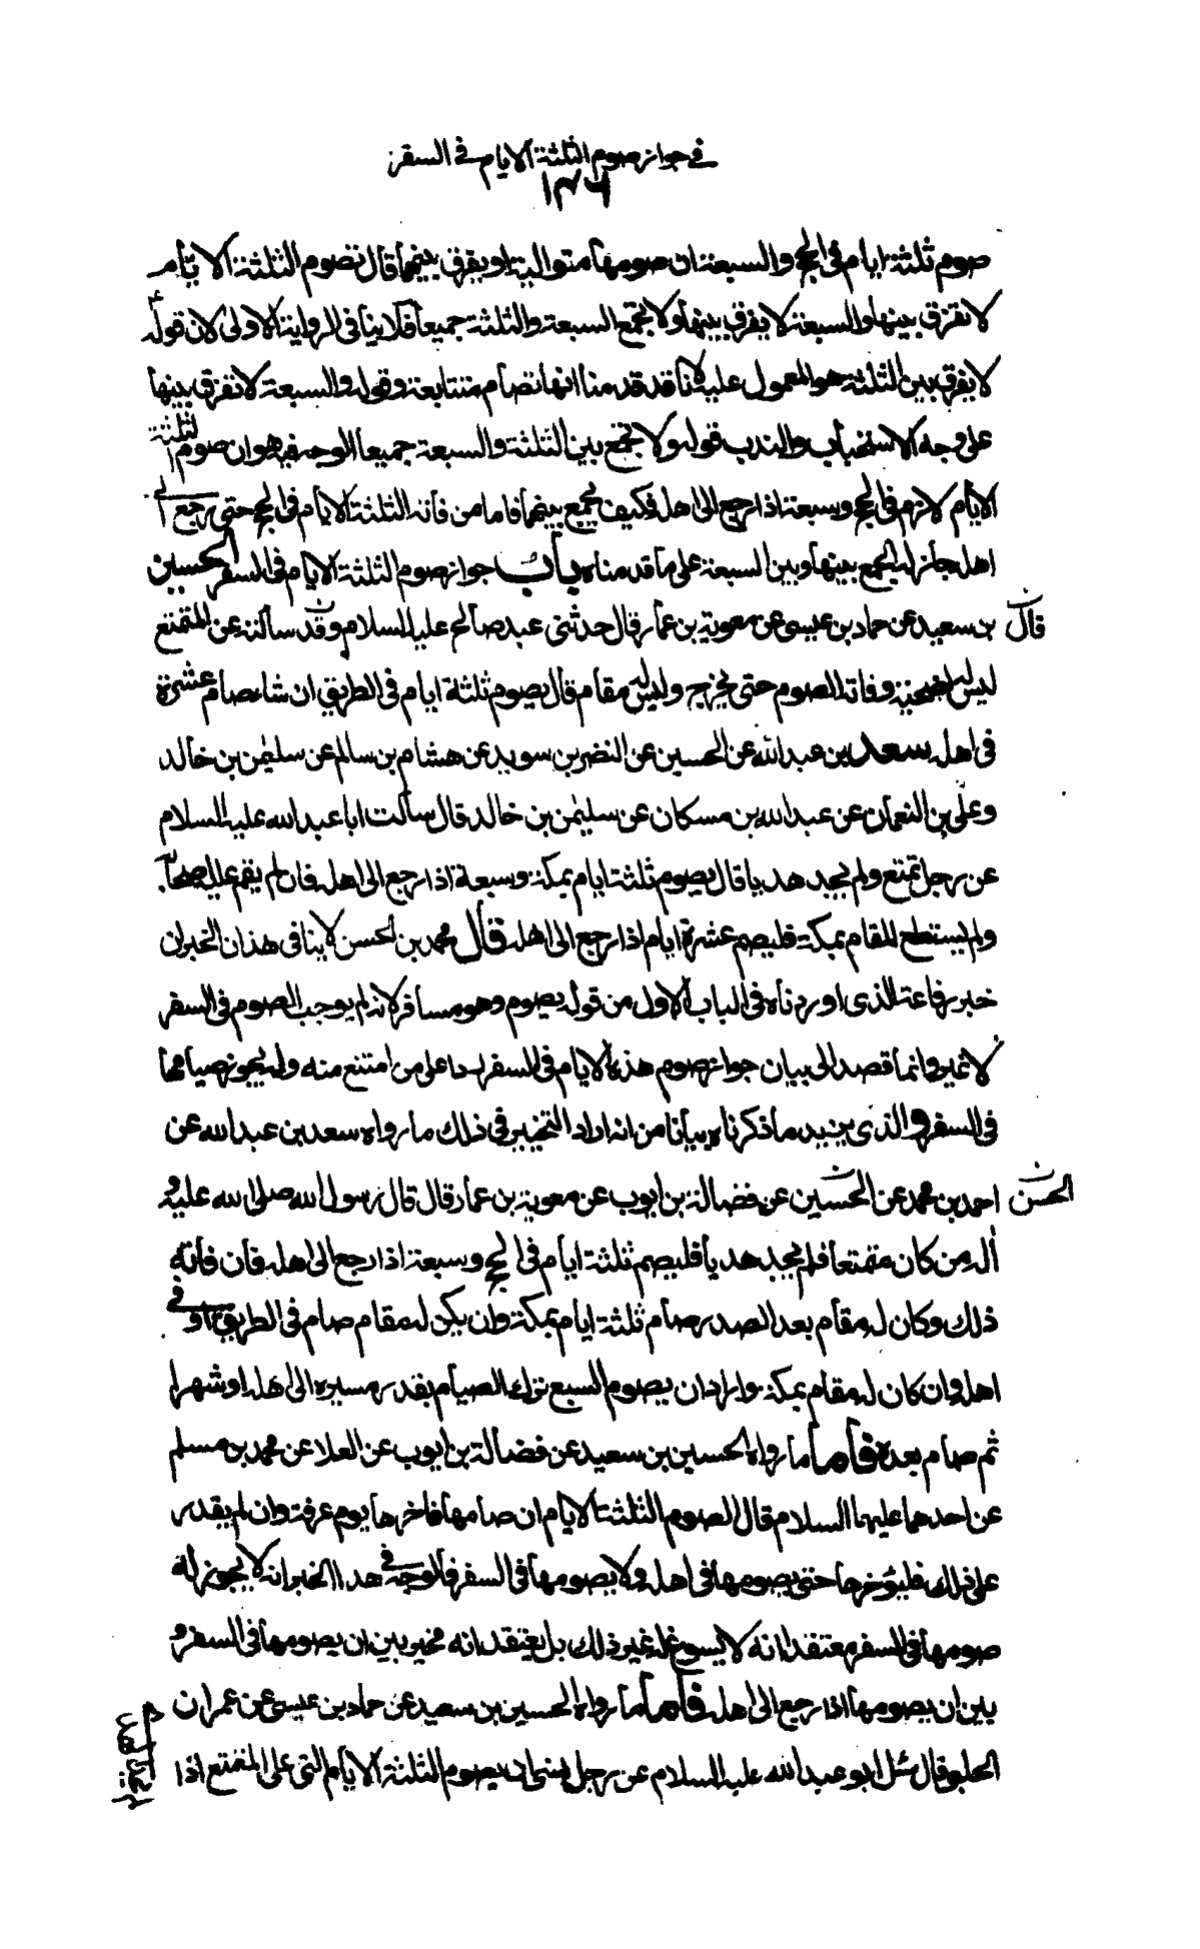 في جواز صوم الثلثة الايام في السفر
١٣٦
صوم ثلثة ايام في الحج والسبعة ان صومها متوالية او يفرق بينهما قال تصوم الثلثة الايام
لا تفرق بينها والسبعة لا يفرق بينها ولا يجمع السبعة والثلثة جميعا فلا ينافي الرواية الاولى لان قوله
لا يفرق بين الثلثة هو المعمول عليه لانا قد قدمنا انها تصام متتابعة وقوله والسبعة لا تفرق بينها
على وجه الاستحباب والندب قوله ولا تجمع بين الثلثة والسبعة جميعا الوجه فيه هو ان صوم الثلثة
الايام لازم في الحج وسبعة اذا رجع الى اهله فكيف يجمع بينهما فاما من فاته الثلثة الايام في الحج حتى رجع الى
اهله جاز له الجمع بينها وبين السبعة على ما قدمناه باب جواز صوم الثلثة الايام في السفر الحسين
بن سعيد عن حماد بن عيسى عن معوية بن عمار قال حدثني عبد صالح عليه السلام وقد سألته عن المتمتع
قال
ليس له اضحية وفاته الصوم حتى يخرج وليس له مقام قال يصوم ثلثة ايام في الطريق ان شاء صام عشرة
في اهله سعد بن عبد الله عن الحسين عن النضر بن سويد عن هشام بن سالم عن سليمن بن خالد
وعلي بن النعمان عن عبد الله بن مسكان عن سليمن بن خالد قال سألت ابا عبد الله عليه السلام
عن رجل تمتع ولم يجد هديا قال يصوم ثلثة ايام بمكة وسبعة اذا رجع الى اهله فان لم يقم عليه اصحابه
ولم يستطع المقام بمكة فليصم عشرة ايام اذا رجع الى اهله قال محمد بن الحسن لا ينافي هذان الخبران
خبر رفاعة الذي اوردناه في الباب الاول من قوله يصوم وهو مسافر لانه لم يوجب الصوم في السفر
لا غير وانما قصد الى بيان جواز صوم هذه الايام في السفر ردا على من امتنع منه ولم يجوز صيامها
في السفر والذي يزيد ما ذكرناه بيانا من انه اراد التخيير في ذلك ما رواه سعد بن عبد الله عن
احمد بن محمد عن الحسين عن فضالة بن ايوب عن معوية بن عمار قال قال رسول الله صلى الله عليه و
الحسن
آله من كان متمتعا فلم يجد هديا فليصم ثلثة ايام في الحج وسبعة اذا رجع الى اهله فان فاته
ذلك وكان له مقام بعد الصدر صام ثلثة ايام بمكة وان يكن له مقام صام في الطريق او في
اهله وان كان له مقام بمكة واراد ان يصوم السبع ترك الصيام بقدر مسيره الى اهله او شهرا
ثم صام بعده فاما ما رواه الحسين بن سعيد عن فضالة بن ايوب عن العلا عن محمد بن مسلم
عن احدهما عليهما السلام قال الصوم الثلثة الايام ان صامها فاخرها يوم عرفة وان لم يقدر
على ذلك فليؤخرها حتى يصومها في اهله ولا يصومها في السفر فالوجه في هذا الخبر انه لا يجوز له
صومها في السفر معتقدا انه لا يسوغ له غير ذلك بل يعتقد انه مخير بين ان يصومها في السفر و
بين ان يصومها اذا رجع الى اهله فاما ما رواه الحسين بن سعيد عن حماد بن عيسى عن عمران
الحلبي قال سئل ابو عبد الله عليه السلام عن رجل نسى ان يصوم الثلثة الايام التي على المتمتع اذا